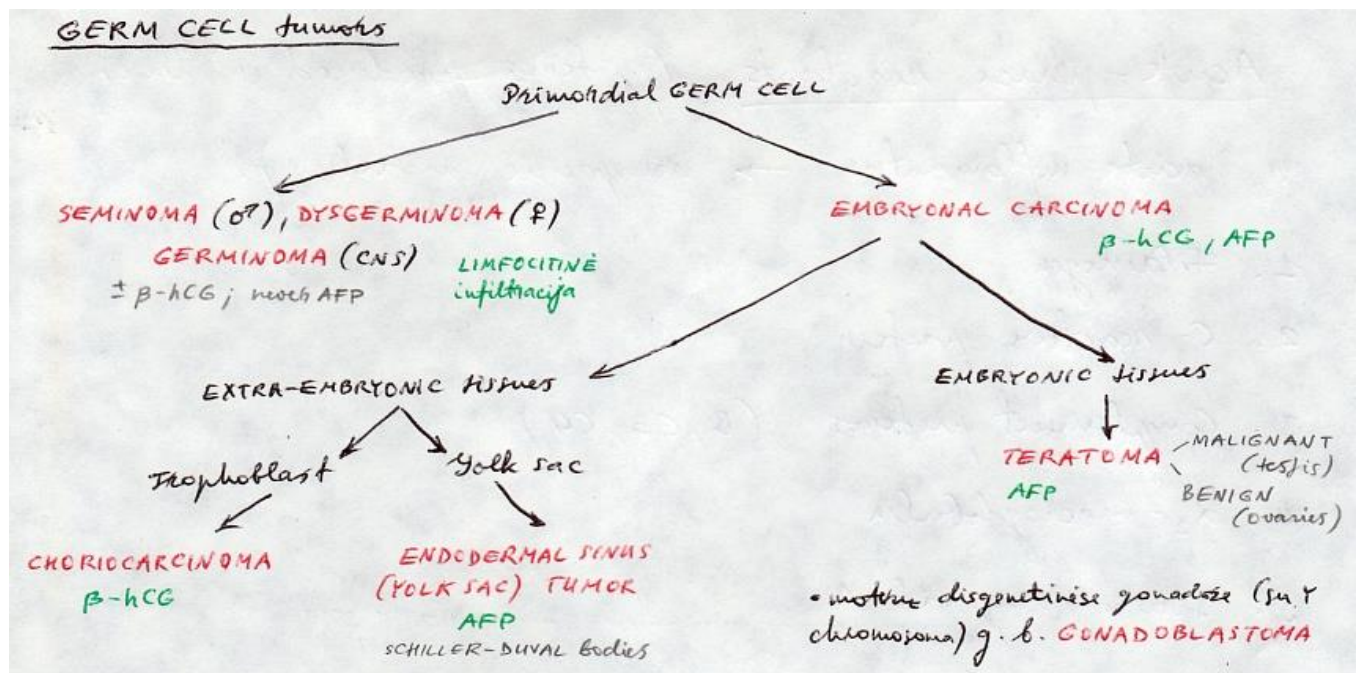 GERM CELL tumors
Primordial GERM CELL
SEMINOMA (♂), DYSGERMINOMA (♀)
GERMINOMA (CNS)
± β-hCG ; AFP
LIMFOCITINĖ
infiltracija
EMBRYONAL CARCINOMA
β-hCG, AFP
EXTRA-EMBRYONIC tissues
EMBRYONIC tissues
Trophoblast
Yolk sac
TERATOMA
AFP
MALIGNANT
(testis)
BENIGN
(ovaries)
CHORIOCARCINOMA
β-hCG
ENDODERMAL SINUS
(YOLK SAC) TUMOR
AFP
SCHILLER-DUVAL bodies
• moterų disgenetinėse gonadose (su Y
chromosoma) g. b. GONADOBLASTOMA